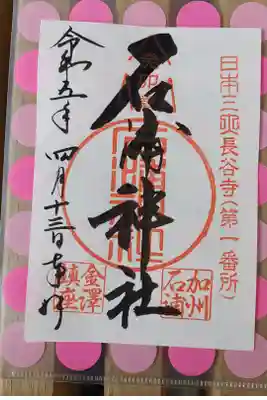 日本三十三長谷寺(第一番所)
石浦神社
加州
石浦
金澤
鎮座
令和五年 四月十三日 奉拝